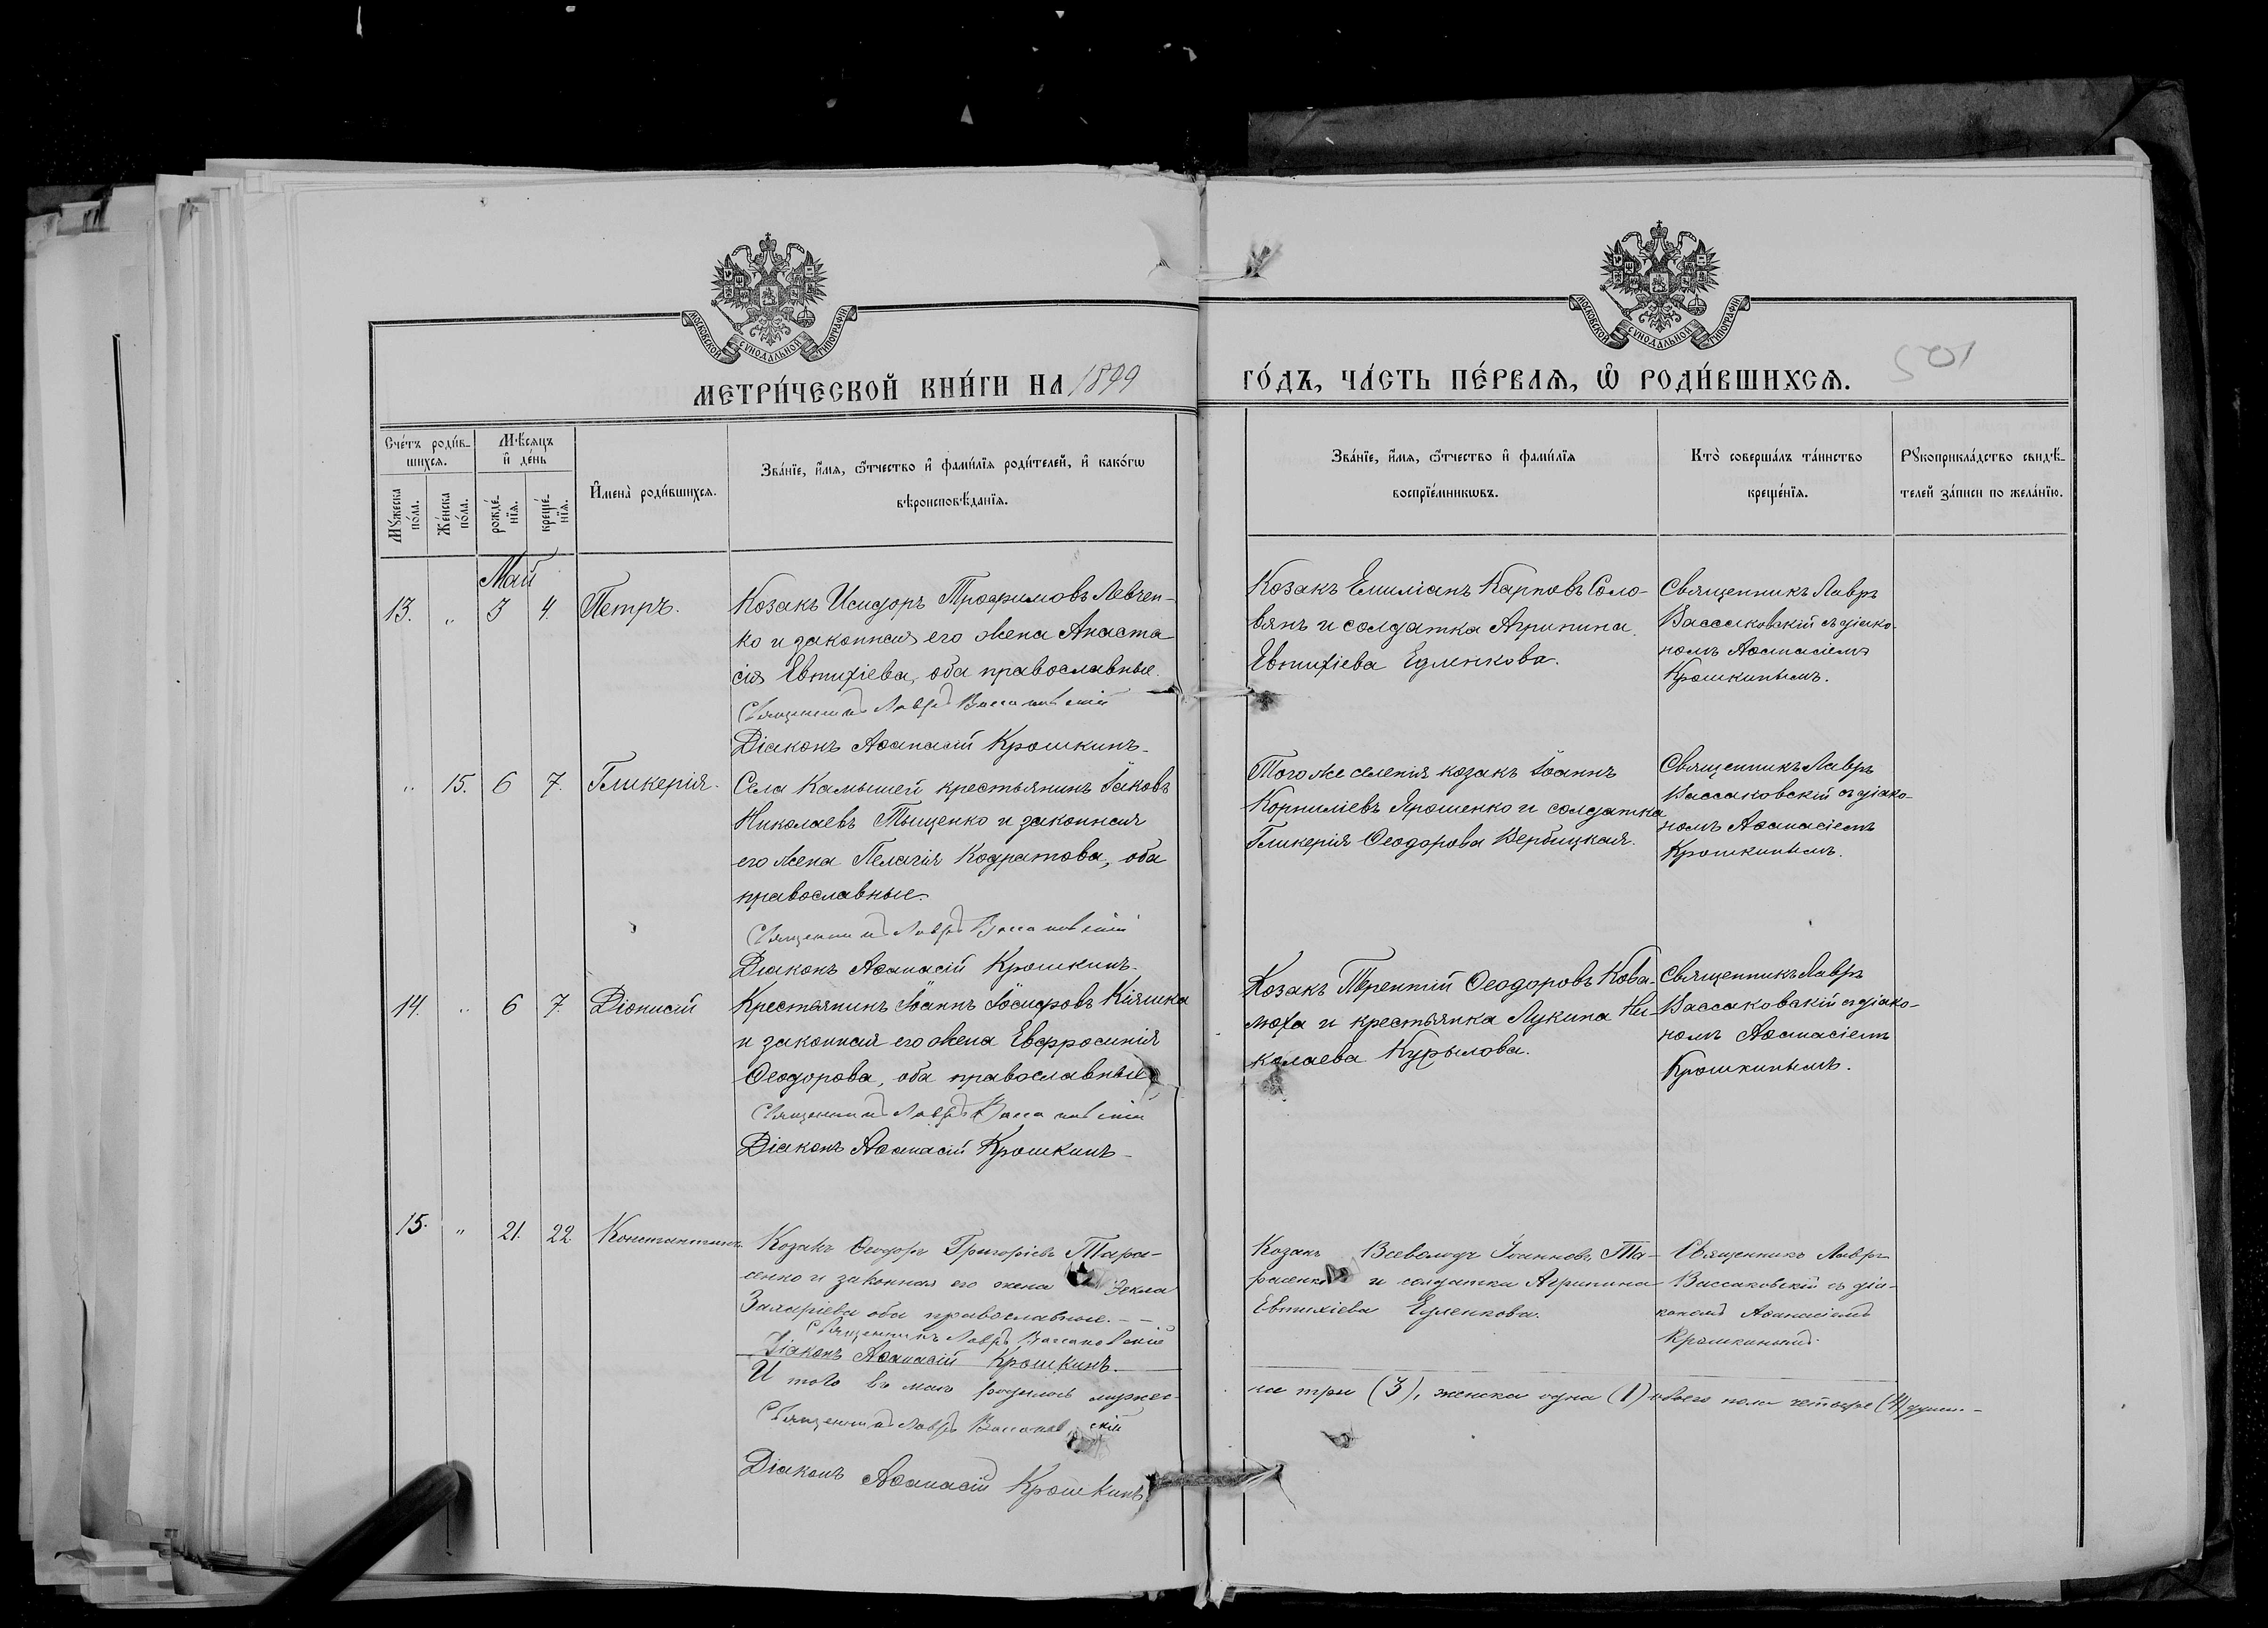 МОСКОВСКОЙ СУНОДАЛЬНОЙ ТИПОГРАФІИ
МОСКОВСКОЙ СУНОДАЛЬНОЙ ТИПОГРАФІИ
501
МЕТРИ́ЧЕСКОЙ КНИ́ГИ НА 1899 ГО́ДЪ, ЧА́СТЬ ПЕ́РВАѦ, Ѡ҆ РОДИ́ВШИХСѦ.
Сче́тъ роди́в-
шихсѧ.
Мꙋжеска
по́ла.
Же́нска
по́ла.
Мѣ́сѧцъ
и҆ де́нь
рожде́-
нїѧ.
креще́-
нїѧ.
И҆мена̀ роди́вшихсѧ.
Зва́нїе, и҆́мѧ, ѻ҆́тчество и҆ фами́лїѧ роди́телей, и҆ како́гѡ
вѣроисповѣ́данїѧ.
Зва́нїе, и҆́мѧ, ѻ҆́тчество и҆ фами́лїѧ
воспрїе́мникѡвъ.
Кто̀ соверша́лъ та́инство
креще́нїѧ.
Рꙋкоприкла́дство свидѣ́-
телей за́писи по жела́нїю.
Май
13. „ 3 4. Петръ.
Козакъ Исидоръ Трофимовъ Левчен-
ко и законная его жена Анаста
сія Евтихіева, оба православные.
Священникъ Лавръ Вассаковскій
Діаконъ Аѳанасій Крошкинъ.
Козакъ Емиліанъ Карповъ Соло-
вянъ и солдатка Агрипина
Евтихіева Едленкова.
Священникъ Лавръ
Вассаковскій съ діако-
номъ Аѳанасіемъ
Крошкинымъ.
„ 15. 6 7. Гликерія.
Села Камышей крестьянинъ Іаковъ
Николаевъ Тыщенко и законная
его жена Пелагія Кодратова, оба
православные.
Священникъ Лавръ Вассаковскій
Діаконъ Аѳанасій Крошкинъ.
Того же селенія козакъ Іоаннъ
Корниліевъ Ярошенко и солдатка
Гликерія Ѳеодорова Вербицкая.
Священникъ Лавръ
Вассаковскій съ діако-
номъ Аѳанасіемъ
Крошкинымъ.
14. „ 6 7. Діонисій
Крестьянинъ Іоаннъ Іосифовъ Кіяшко
и законная его жена Евфросинія
Ѳеодорова, оба православные
Священникъ Лавръ Вассаковскій
Діаконъ Аѳанасій Крошкинъ.
Козакъ Терентій Ѳеодоровъ Кова-
люха и крестьянка Лукина Ни-
колаева Курылова.
Священникъ Лавръ
Вассаковскій съ діако-
номъ Аѳанасіемъ
Крошкинымъ.
15. „ 21. 22 Константинъ.
Козакъ Ѳеодоръ Григоріевъ Тара-
сенко и законная его жена Ѳекла
Захаріева оба православные. –
Священникъ Лавръ Вассаковскій
Діаконъ Аѳанасій Крошкинъ.
Козакъ Всеволодъ Іоанновъ Та-
расенко и солдатка Агрипина
Евтихіева Едленкова.
Священникъ Лавръ
Вассаковскій съ діа-
кономъ Аѳанасіемъ
Крошкинымъ.
И того въ маѣ родилось мужес-
ка три (3), женска одна (1) обоего пола четыре (4) души. –
Священникъ Лавръ Вассаковскій
Діаконъ Аѳанасій Крошкинъ